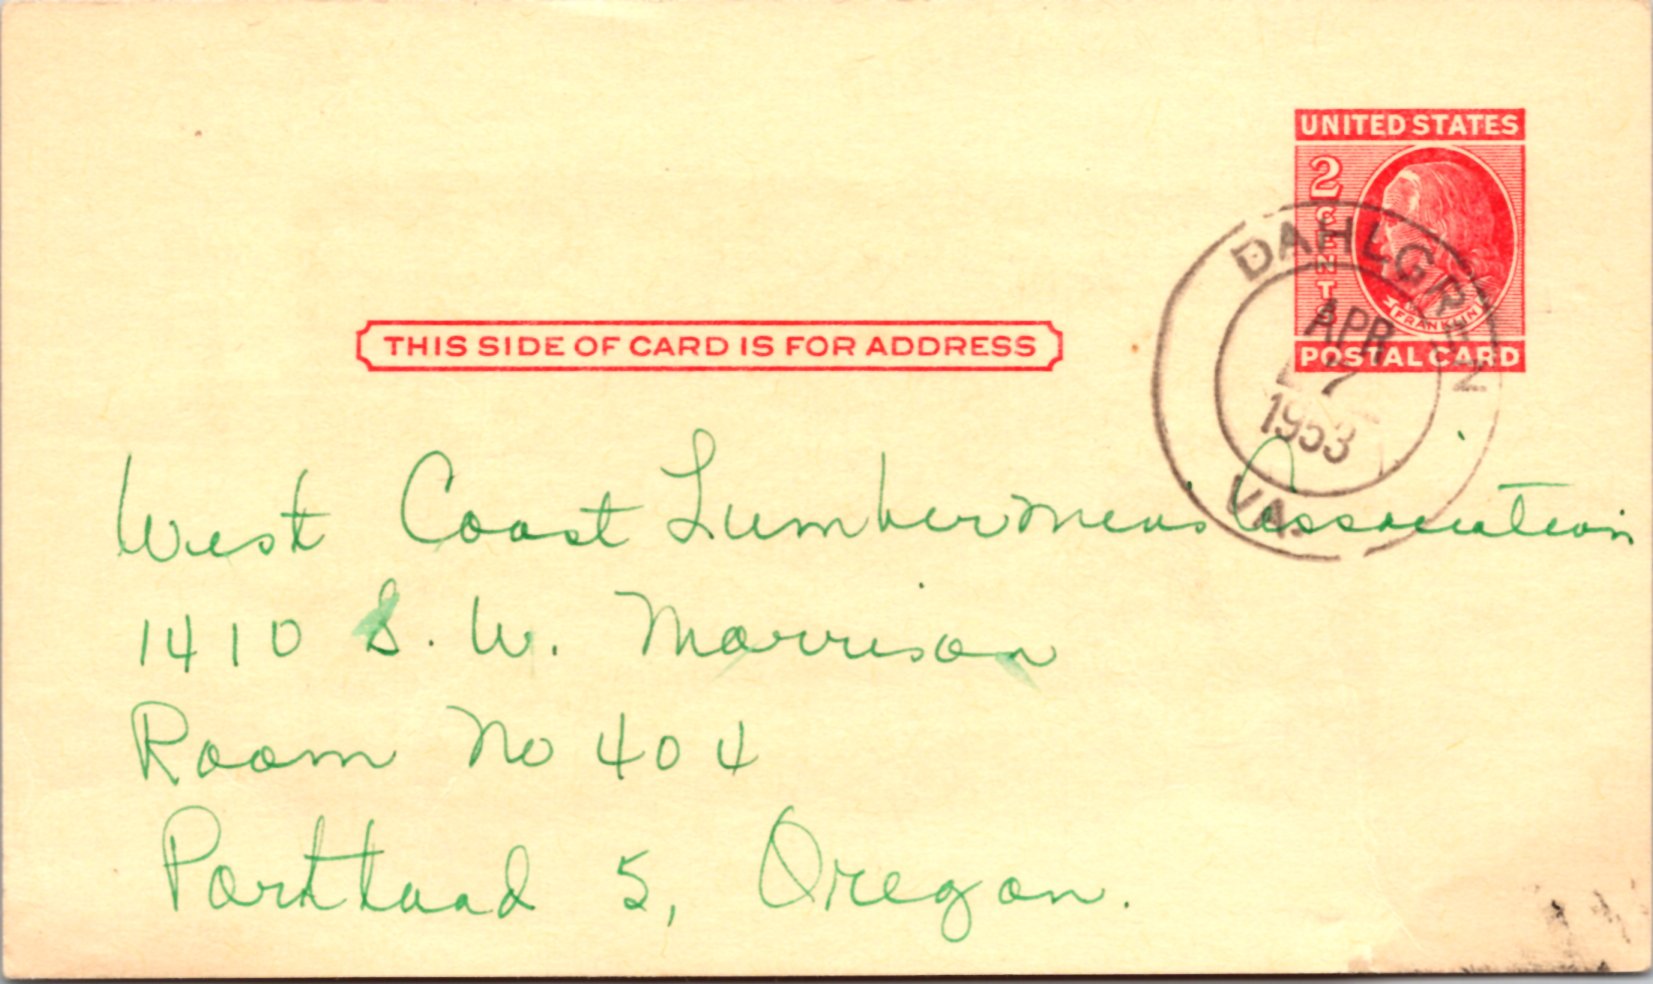 UNITED STATES
2 CENTS
FRANKLIN
POSTAL CARD
DAHLGREN
APR
7
1953
VA.
THIS SIDE OF CARD IS FOR ADDRESS
West Coast Lumbermens Association
1410 S. W. Morrison
Room No 404
Portland 5, Oregon.